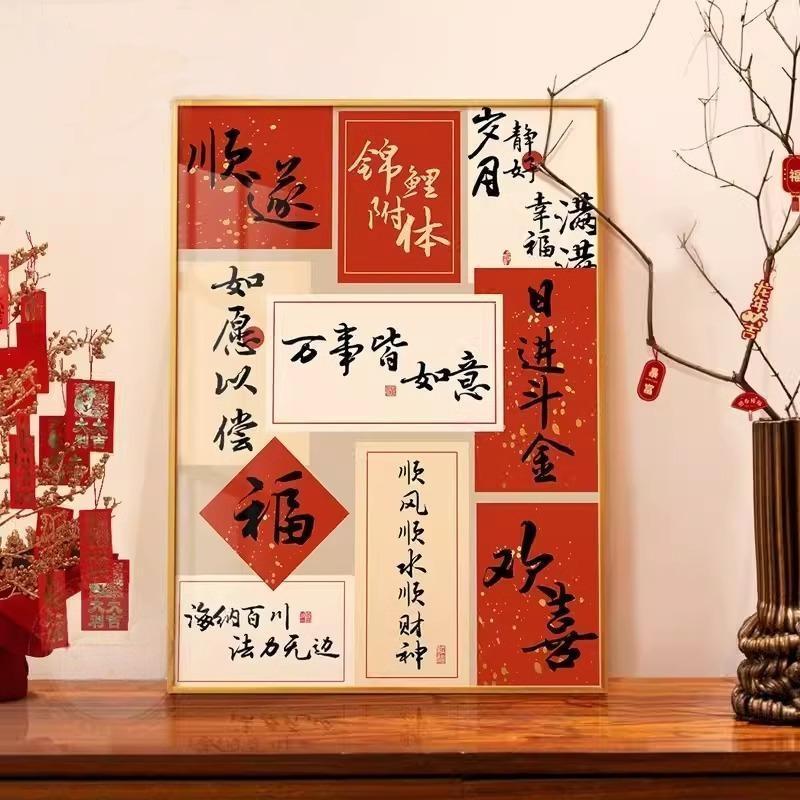 顺遂
锦鲤
附体
岁月
静好
幸福
满满
如愿以偿
万事皆
如意
日进斗金
福
顺风顺水顺财神
欢喜
海纳百川
法力无边
福
龙年大吉
暴富
大吉
大利
大吉
大利